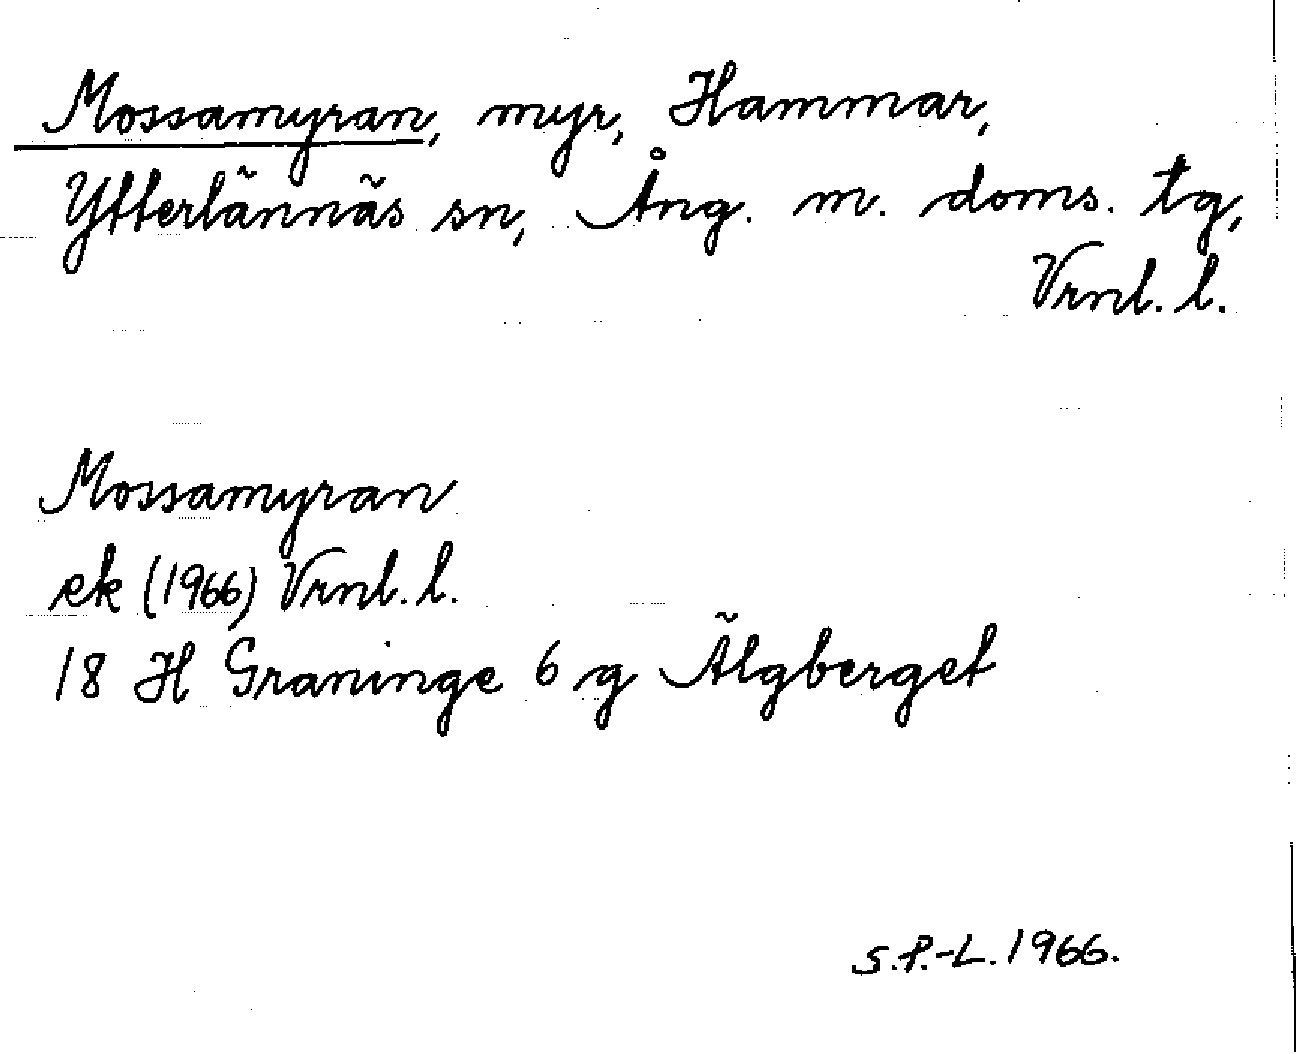 Mossamyran, myr, Hammar,
Ytterlännäs sn, Ång. m. doms. tg,
Vrnl. l.
Mossamyran
ek (1966) Vrnl. l.
18 H Graninge 6 g Älgberget
S.P.-L. 1966.